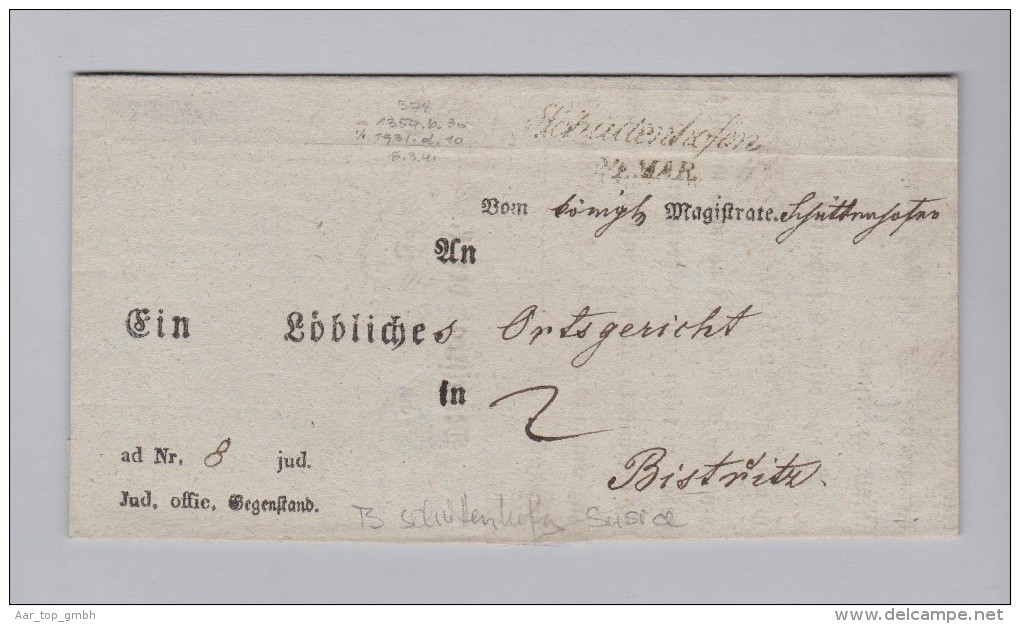 378
1359.b.30
1/1 1931.d.10
8.3.41
Schüttenhofen
MAR.
Vom königl Magistrate. Schüttenhofen
An
Ein Löbliches Ortsgericht
in
2
Bistritz.
ad Nr. 8 jud.
Jud. offic. Gegenstand.
B Schüttenhofen Susice
Aar_top_gmbh
www.delcampe.net